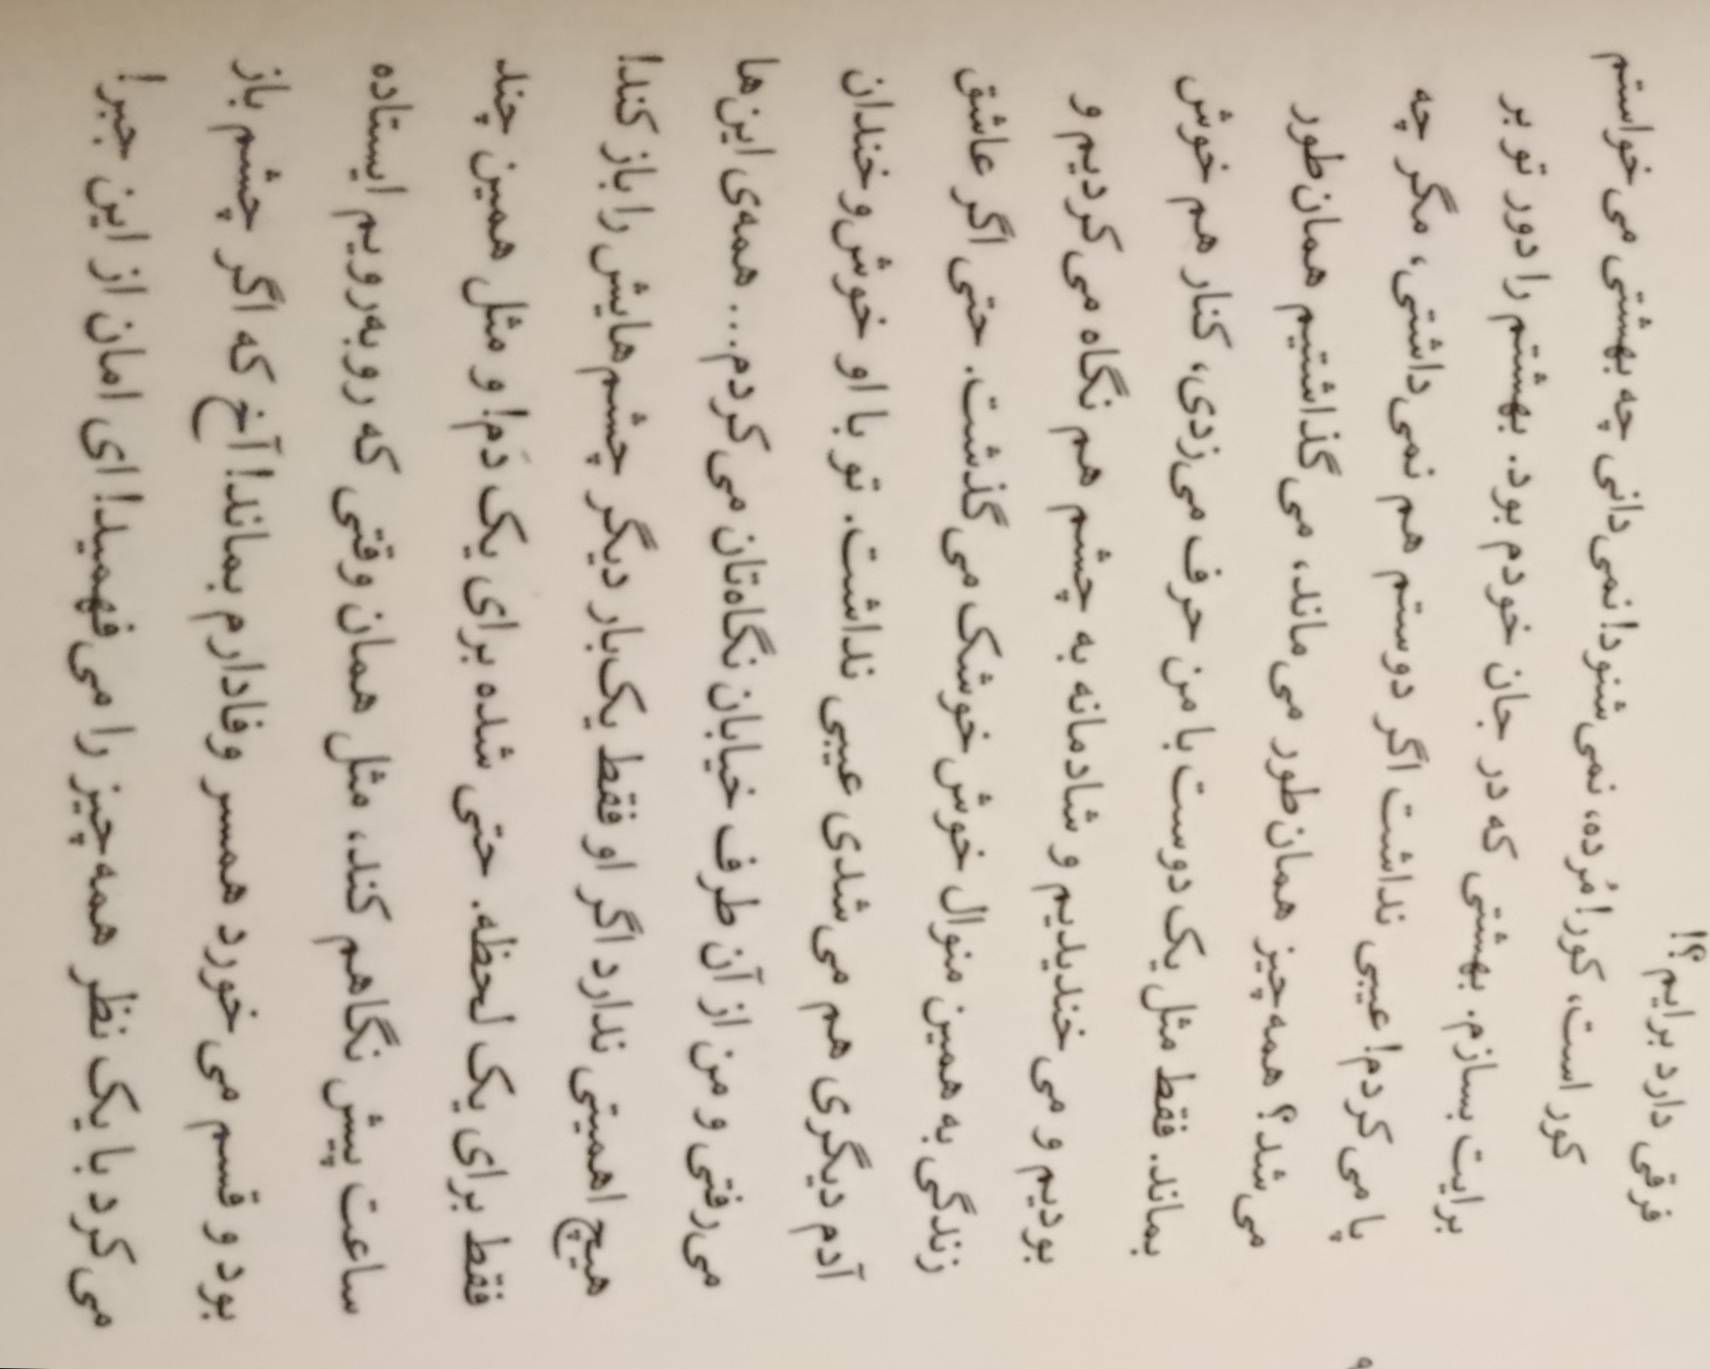 فرقی دارد برایم؟!
کور است، کور! مُرده، نمی‌شنود! نمی‌دانی چه بهشتی می‌خواستم
برایت بسازم. بهشتی که در جان خودم بود. بهشتم را دور تو بر
پا می‌کردم! عیبی نداشت اگر دوستم هم نمی‌داشتی، مگر چه
می‌شد؟ همه‌چیز همان‌طور می‌ماند، می‌گذاشتیم همان‌طور
بماند. فقط مثل یک دوست با من حرف می‌زدی، کنار هم خوش
بودیم و می‌خندیدیم و شادمانه به چشم هم نگاه می‌کردیم و
زندگی به همین منوال خوش خوشک می‌گذشت. حتی اگر عاشق
آدم دیگری هم می‌شدی عیبی نداشت. تو با او خوش‌و‌خندان
می‌رفتی و من از آن طرف خیابان نگاه‌تان می‌کردم... همه‌ی این‌ها
هیچ اهمیتی ندارد اگر او فقط یک‌بار دیگر چشم‌هایش را باز کند!
فقط برای یک لحظه. حتی شده برای یک دَم! و مثل همین چند
ساعت پیش نگاهم کند، مثل همان وقتی که روبه‌رویم ایستاده
بود و قسم می‌خورد همسر وفادارم بماند! آخ که اگر چشم باز
می‌کرد با یک نظر همه‌چیز را می‌فهمید! ای امان از این جبر!